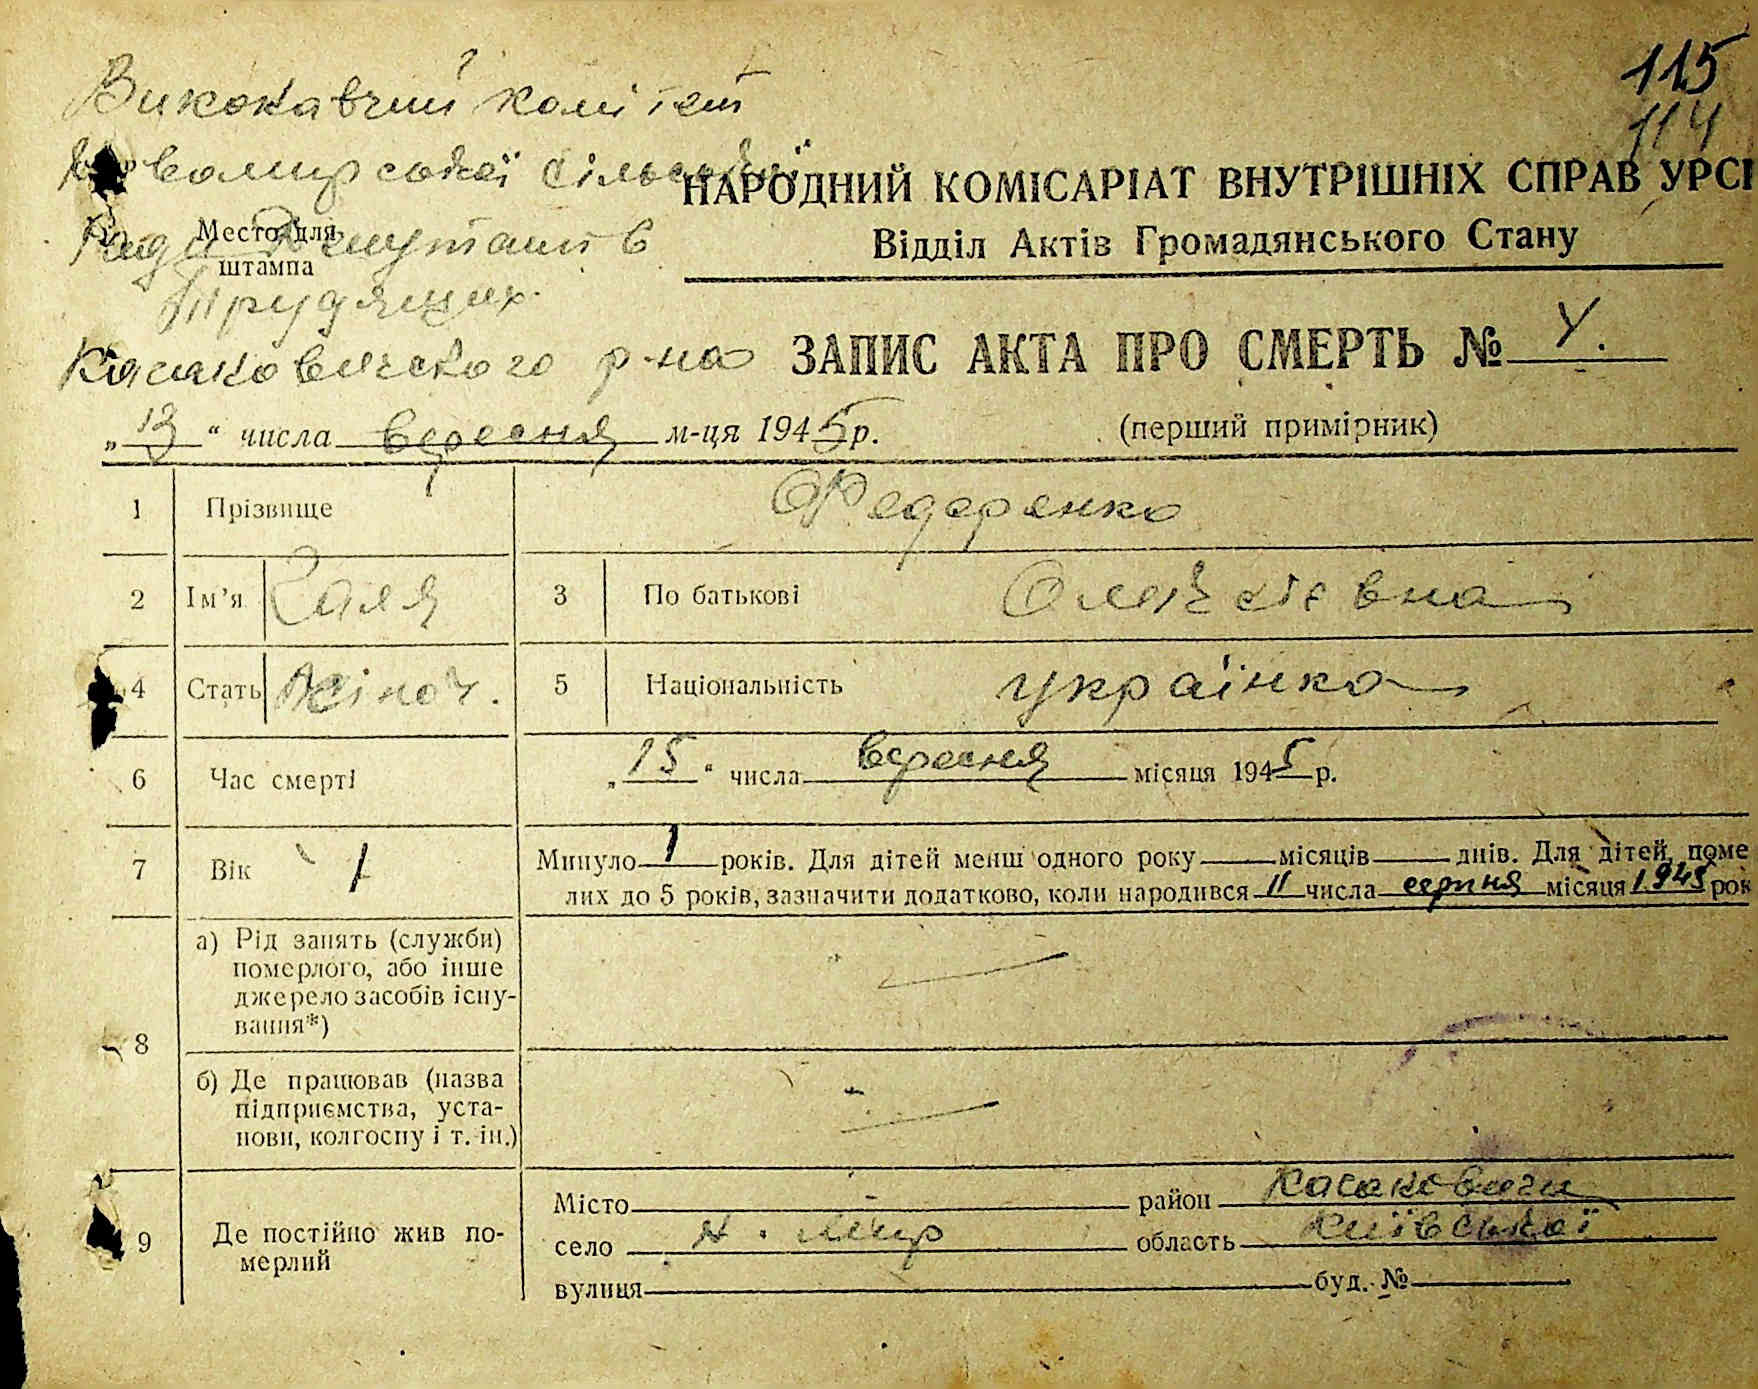 115
114
Виконавчий комітет
Новомирської сільської
Ради Депутатів
Трудящих.
р-на
Место для
штампа
НАРОДНИЙ КОМІСАРІАТ ВНУТРІШНІХ СПРАВ УРСР
Відділ Актів Громадянського Стану
ЗАПИС АКТА ПРО СМЕРТЬ № 4.
„13“ числа вересня м-ця 1945р.
(перший примірник)
1 Прізвище Федоренко
2 Ім’я Галя 3 По батькові Олексієвна
4 Стать Жіноч. 5 Національність українка
6 Час смерті „15“ числа вересня місяця 1945 р.
7 Вік 1 Минуло 1 років. Для дітей менш одного року місяців днів. Для дітей, поме
лих до 5 років, зазначити додатково, коли народився 11 числа серпня місяця рок
8 а) Рід занять (служби)
померлого, або інше
джерело засобів існу-
вання*)
б) Де працював (назва
підприємства, уста-
нови, колгоспу і т. ін.)
9 Де постійно жив по-
мерлий
Місто район
село Н. Мир область Київської
вулиця буд. №